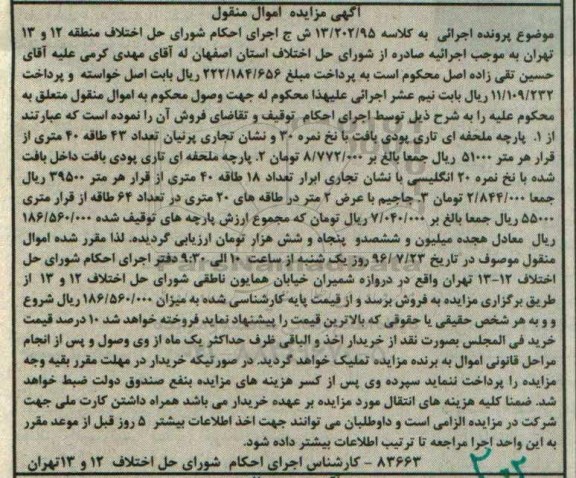 آگهی مزایده اموال منقول
موضوع پرونده اجرائی به کلاسه ۱۳/۲۰۲/۹۵ ش ج اجرای احکام شورای حل اختلاف منطقه ۱۲ و ۱۳
تهران به موجب اجرائیه صادره از شورای حل اختلاف استان اصفهان له آقای مهدی کرمی علیه آقای
حسین تقی زاده اصل محکوم است به پرداخت مبلغ ۲۲۲/۱۸۴/۶۵۶ ریال بابت اصل خواسته و پرداخت
۱۱/۱۰۹/۲۳۲ ریال بابت نیم عشر اجرائی علیهذا محکوم له جهت وصول محکوم به اموال منقول متعلق به
محکوم علیه را به شرح ذیل توسط اجرای احکام توقیف و تقاضای فروش آن را نموده است که عبارتند
از ۱. پارچه ملحفه ای تاری پودی بافت با نخ نمره ۳۰ و نشان تجاری پرنیان تعداد ۴۳ طاقه ۴۰ متری از
قرار هر متر ۵۱۰۰۰ ریال جمعا بالغ بر ۸/۷۷۲/۰۰۰ تومان ۲. پارچه ملحفه ای تاری پودی بافت داخل بافت
شده با نخ نمره ۲۰ انگلیسی با نشان تجاری ابرار تعداد ۱۸ طاقه ۴۰ متری از قرار هر متر ۳۹۵۰۰ ریال
جمعا ۲/۸۴۴/۰۰۰ تومان ۳. چاجیم با عرض ۲ متر در طاقه های ۲۰ متری در تعداد ۶۴ طاقه از قرار متری
۵۵۰۰۰ ریال جمعا بالغ بر ۷/۰۴۰/۰۰۰ ریال تومان که مجموع ارزش پارچه های توقیف شده ۱۸۶/۵۶۰/۰۰۰
ریال معادل هجده میلیون و ششصدو پنجاه و شش هزار تومان ارزیابی گردیده. لذا مقرر شده اموال
منقول موصوف در تاریخ ۹۶/۷/۲۳ روز یک شنبه از ساعت ۱۰ الی ۹:۳۰ دفتر اجرای احکام شورای حل
اختلاف ۱۲-۱۳ تهران واقع در دروازه شمیران خیابان همایون ناطقی شورای حل اختلاف ۱۲ و ۱۳ از
طریق برگزاری مزایده به فروش برسد و از قیمت پایه کارشناسی شده به میزان ۱۸۶/۵۶۰/۰۰۰ ریال شروع
و و به هر شخص حقیقی یا حقوقی که بالاترین قیمت را پیشنهاد نماید فروخته خواهد شد ۱۰ درصد قیمت
خرید فی المجلس بصورت نقد از خریدار اخذ و الباقی ظرف حداکثر یک ماه از وی وصول و پس از انجام
مراحل قانونی اموال به برنده مزایده تملیک خواهد گردید. در صورتیکه خریدار در مهلت مقرر بقیه وجه
مزایده را پرداخت ننماید سپرده وی پس از کسر هزینه های مزایده بنفع صندوق دولت ضبط خواهد
شد. ضمنا کلیه هزینه های انتقال مورد مزایده بر عهده خریدار می باشد همراه داشتن کارت ملی جهت
شرکت در مزایده الزامی است و داوطلبان می توانند جهت اخذ اطلاعات بیشتر ۵ روز قبل از موعد مقرر
به این واحد اجرا مراجعه تا ترتیب اطلاعات بیشتر داده شود.
۸۳۶۶۳ - کارشناس اجرای احکام شورای حل اختلاف ۱۲ و ۱۳تهران